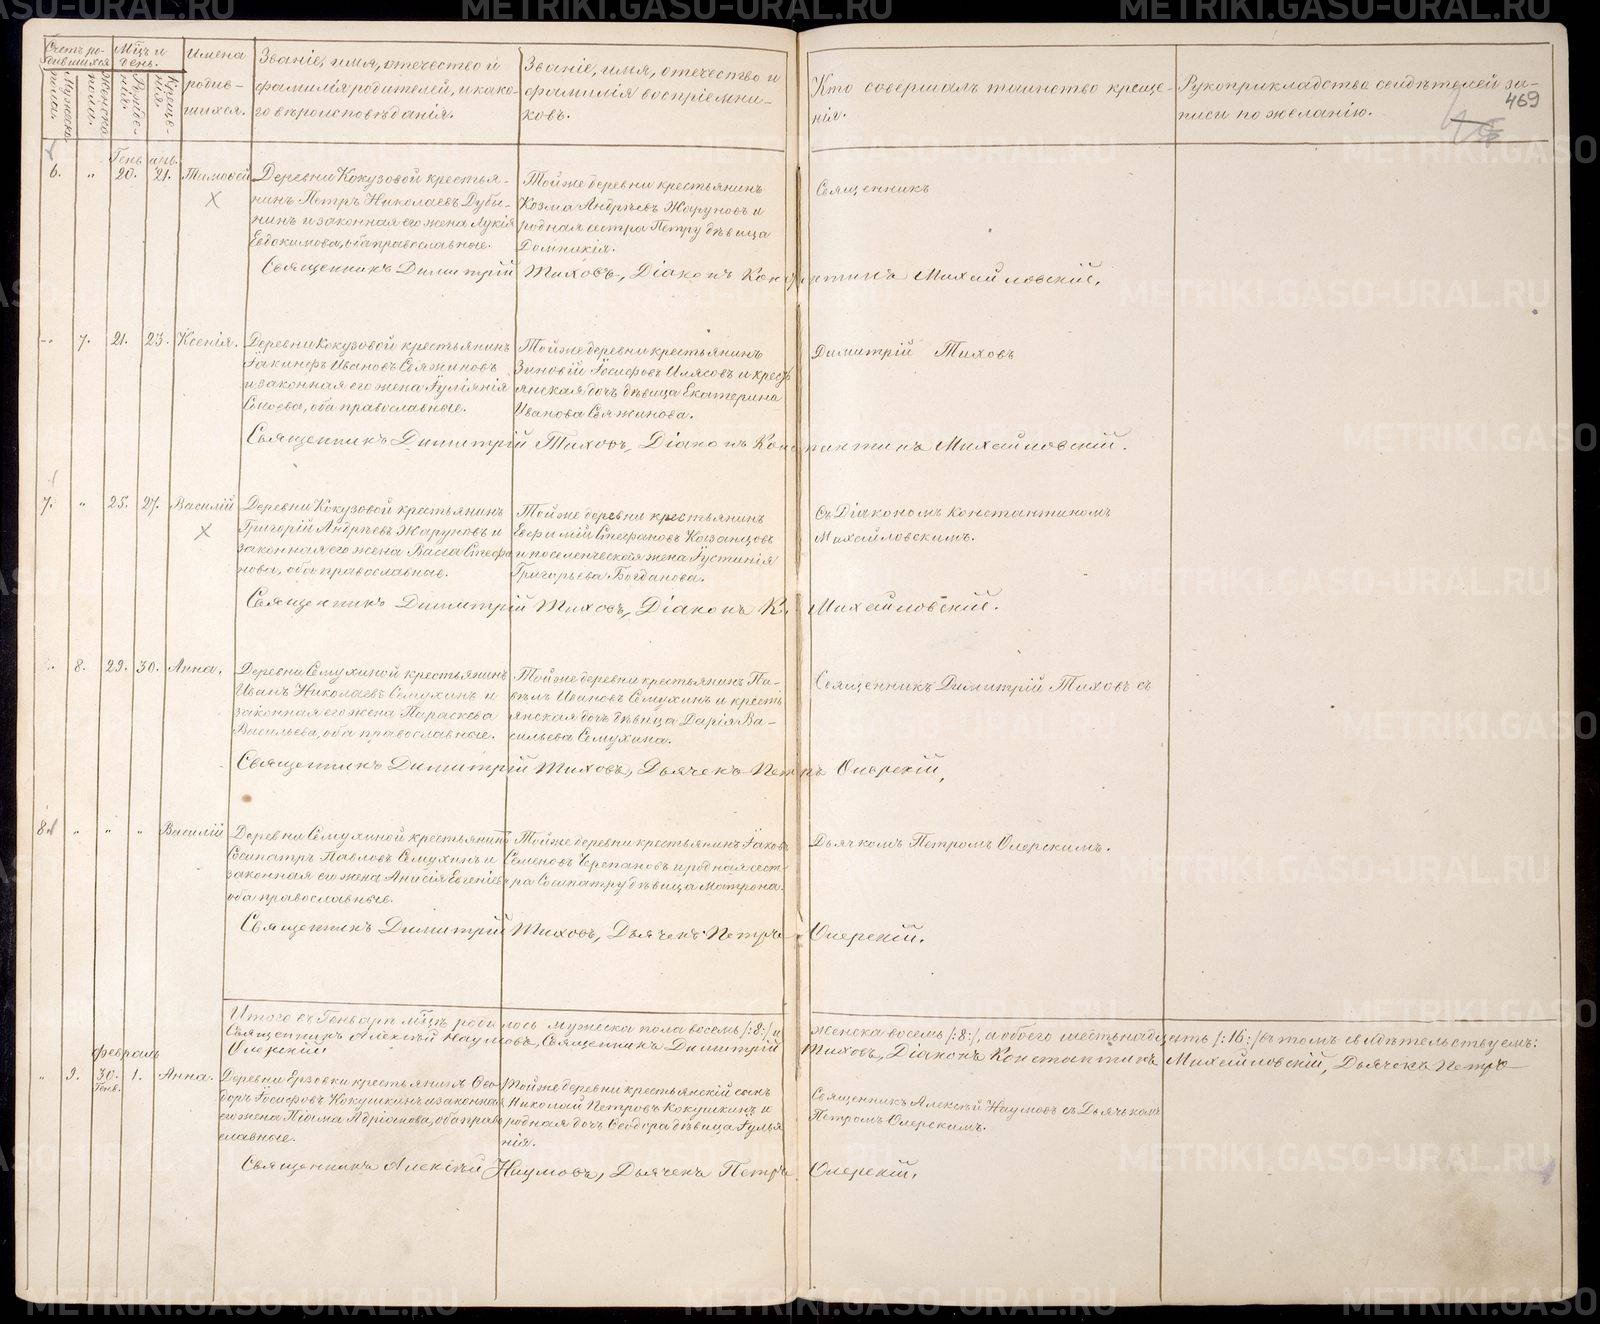 Счетъ ро-
дившихся
Мужеска
пола.
Женска
пола.
Мцъ и
день.
Рожде-
нія.
Креще-
нія.
Имена
родив-
шихся.
Званіе, имя, отечество и
фамилія родителей, и како-
го вѣроисповѣданія.
Званіе, имя, отечество и
фамилія воспріемни-
ковъ.
Кто совершалъ таинство креще-
нія.
Рукоприкладство свидѣтелей за-
писи по желанію.
469
Генв арь.
6. " 20. 21. Тимовей
Деревни Кокузовой крестья-
нинъ Петръ Николаевъ Дуби-
нинъ и законная его жена Лукія
Евдокимова, оба православные.
Тойже деревни крестьянинъ
Козма Андрѣевъ Жаруновъ и
родная сестра Петру дѣвица
Домникія.
Священникъ
Священникъ Димитрій Тиховъ, Діаконъ Константинъ Михайловскій.
7. 21. 23. Ксенія.
Деревни Кокузовой крестьянинъ
Іакинфъ Ивановъ Свяжиновъ
и законная его жена Іуліянія
оба православные.
Тойже деревни крестьянинъ
Зиновій Іосифовъ Илясовъ и кресть
янская дочь дѣвица Екатерина
Иванова Свяжинова.
Димитрій Тиховъ
Священникъ Димитрій Тиховъ, Діаконъ Константинъ Михайловскій.
7. " 25. 27. Василій
Деревни Кокузовой крестьянинъ
Григорій Андрѣевъ Жаруновъ и
законная его жена Васса Стефа
нова, оба православные.
Тойже деревни крестьянинъ
Евфимій Стефановъ Казанцовъ
и поселенческая жена Іустинія
Григорьева Богданова.
съ Діакономъ Константиномъ
Михайловскимъ.
Священникъ Димитрій Тиховъ, Діаконъ К. Михайловскій.
8. 29. 30. Анна.
Деревни Семухиной крестьянинъ
Иванъ Николаевъ Семухинъ и
законная его жена Параскева
Васильева, оба православные.
Тойже деревни крестьянинъ Па-
велъ Ивановъ Семухинъ и кресть
янская дочь дѣвица Дарія Ва-
сильева Семухина.
Священникъ Димитрій Тиховъ съ
Священникъ Димитрій Тиховъ, Дьячекъ Петръ Оперскій,
8. " " " Василій
Деревни Семухиной крестьянинъ
Сосипатръ Павловъ Семухинъ и
законная его жена Анисія Евгеніев
оба православные.
Тойже деревни крестьянинъ Іаковъ
Семеновъ Черепановъ и родная сест-
ра Сосипатру дѣвица Матрона.
Дьячкомъ Петромъ Оперскимъ.
Священникъ Димитрій Тиховъ, Дьячекъ Петръ Оперскій.
Итого въ Генварѣ мцѣ родилось мужеска пола восемь /:8:/ и женска восемь /:8:/, а обоего шестьнадцать /:16:/ въ томъ свидѣтельствуемъ:
Священникъ Алексѣй Наумовъ, Священникъ Димитрій Тиховъ, Діаконъ Константинъ Михайловскій, Дьячекъ Петръ
Оперскій
февраль
" 9. 30. 1. Анна.
Генв.
Деревни Ерзовки крестьянинъ Ѳео-
доръ Іосифовъ Кокушкинъ и законная
его жена Піама Адріанова, оба право
славные.
Тойже деревни крестьянскій сынъ
Николай Петровъ Кокушкинъ и
родная дочь Ѳеодора дѣвица Іулья
нія.
Священникъ Алексѣй Наумовъ съ Дьячкомъ
Петромъ Оперскимъ.
Священникъ Алексѣй Наумовъ, Дьячекъ Петръ Оперскій.
METRIKI.GASO-URAL.RU